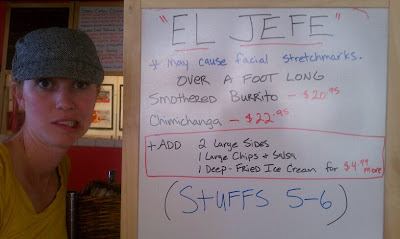 "EL JEFE"
* may cause facial stretchmarks.
OVER A FOOT LONG
Smothered Burrito - $20.95
Chimichanga - $22.95
+ ADD 2 Large Sides
1 Large Chips & Salsa
1 Deep-Fried Ice Cream for $4.99 more
(Stuffs 5-6)